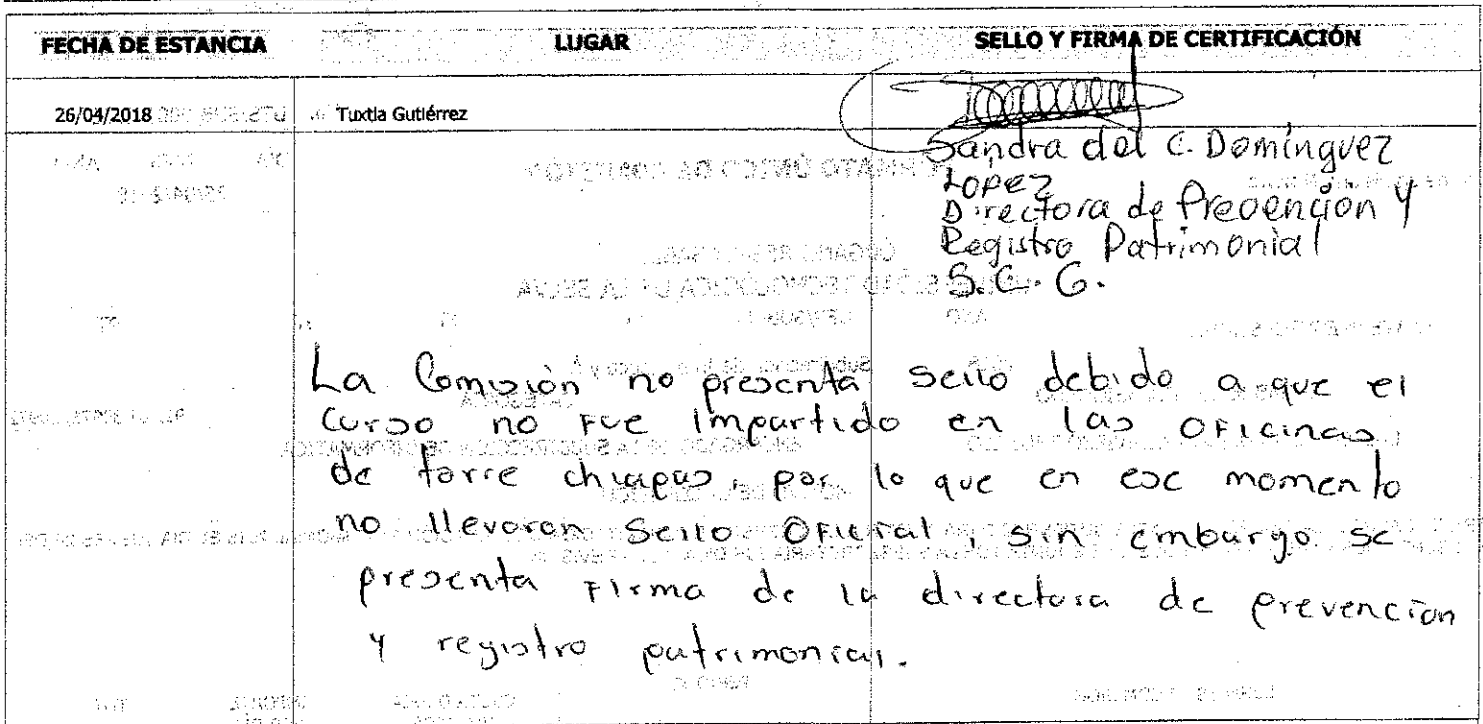 FECHA DE ESTANCIA LUGAR SELLO Y FIRMA DE CERTIFICACIÓN
26/04/2018 Tuxtla Gutiérrez
Sandra del C. Domínguez
Lopez
Directora de Prevención y
Registro Patrimonial
S.C.G.
La Comisión no presenta sello debido a que el
curso no fue impartido en las oficinas
de torre chiapas, por lo que en ese momento
no llevaron Sello Oficial, sin embargo se
presenta firma de la directora de prevencion
y registro patrimonial.